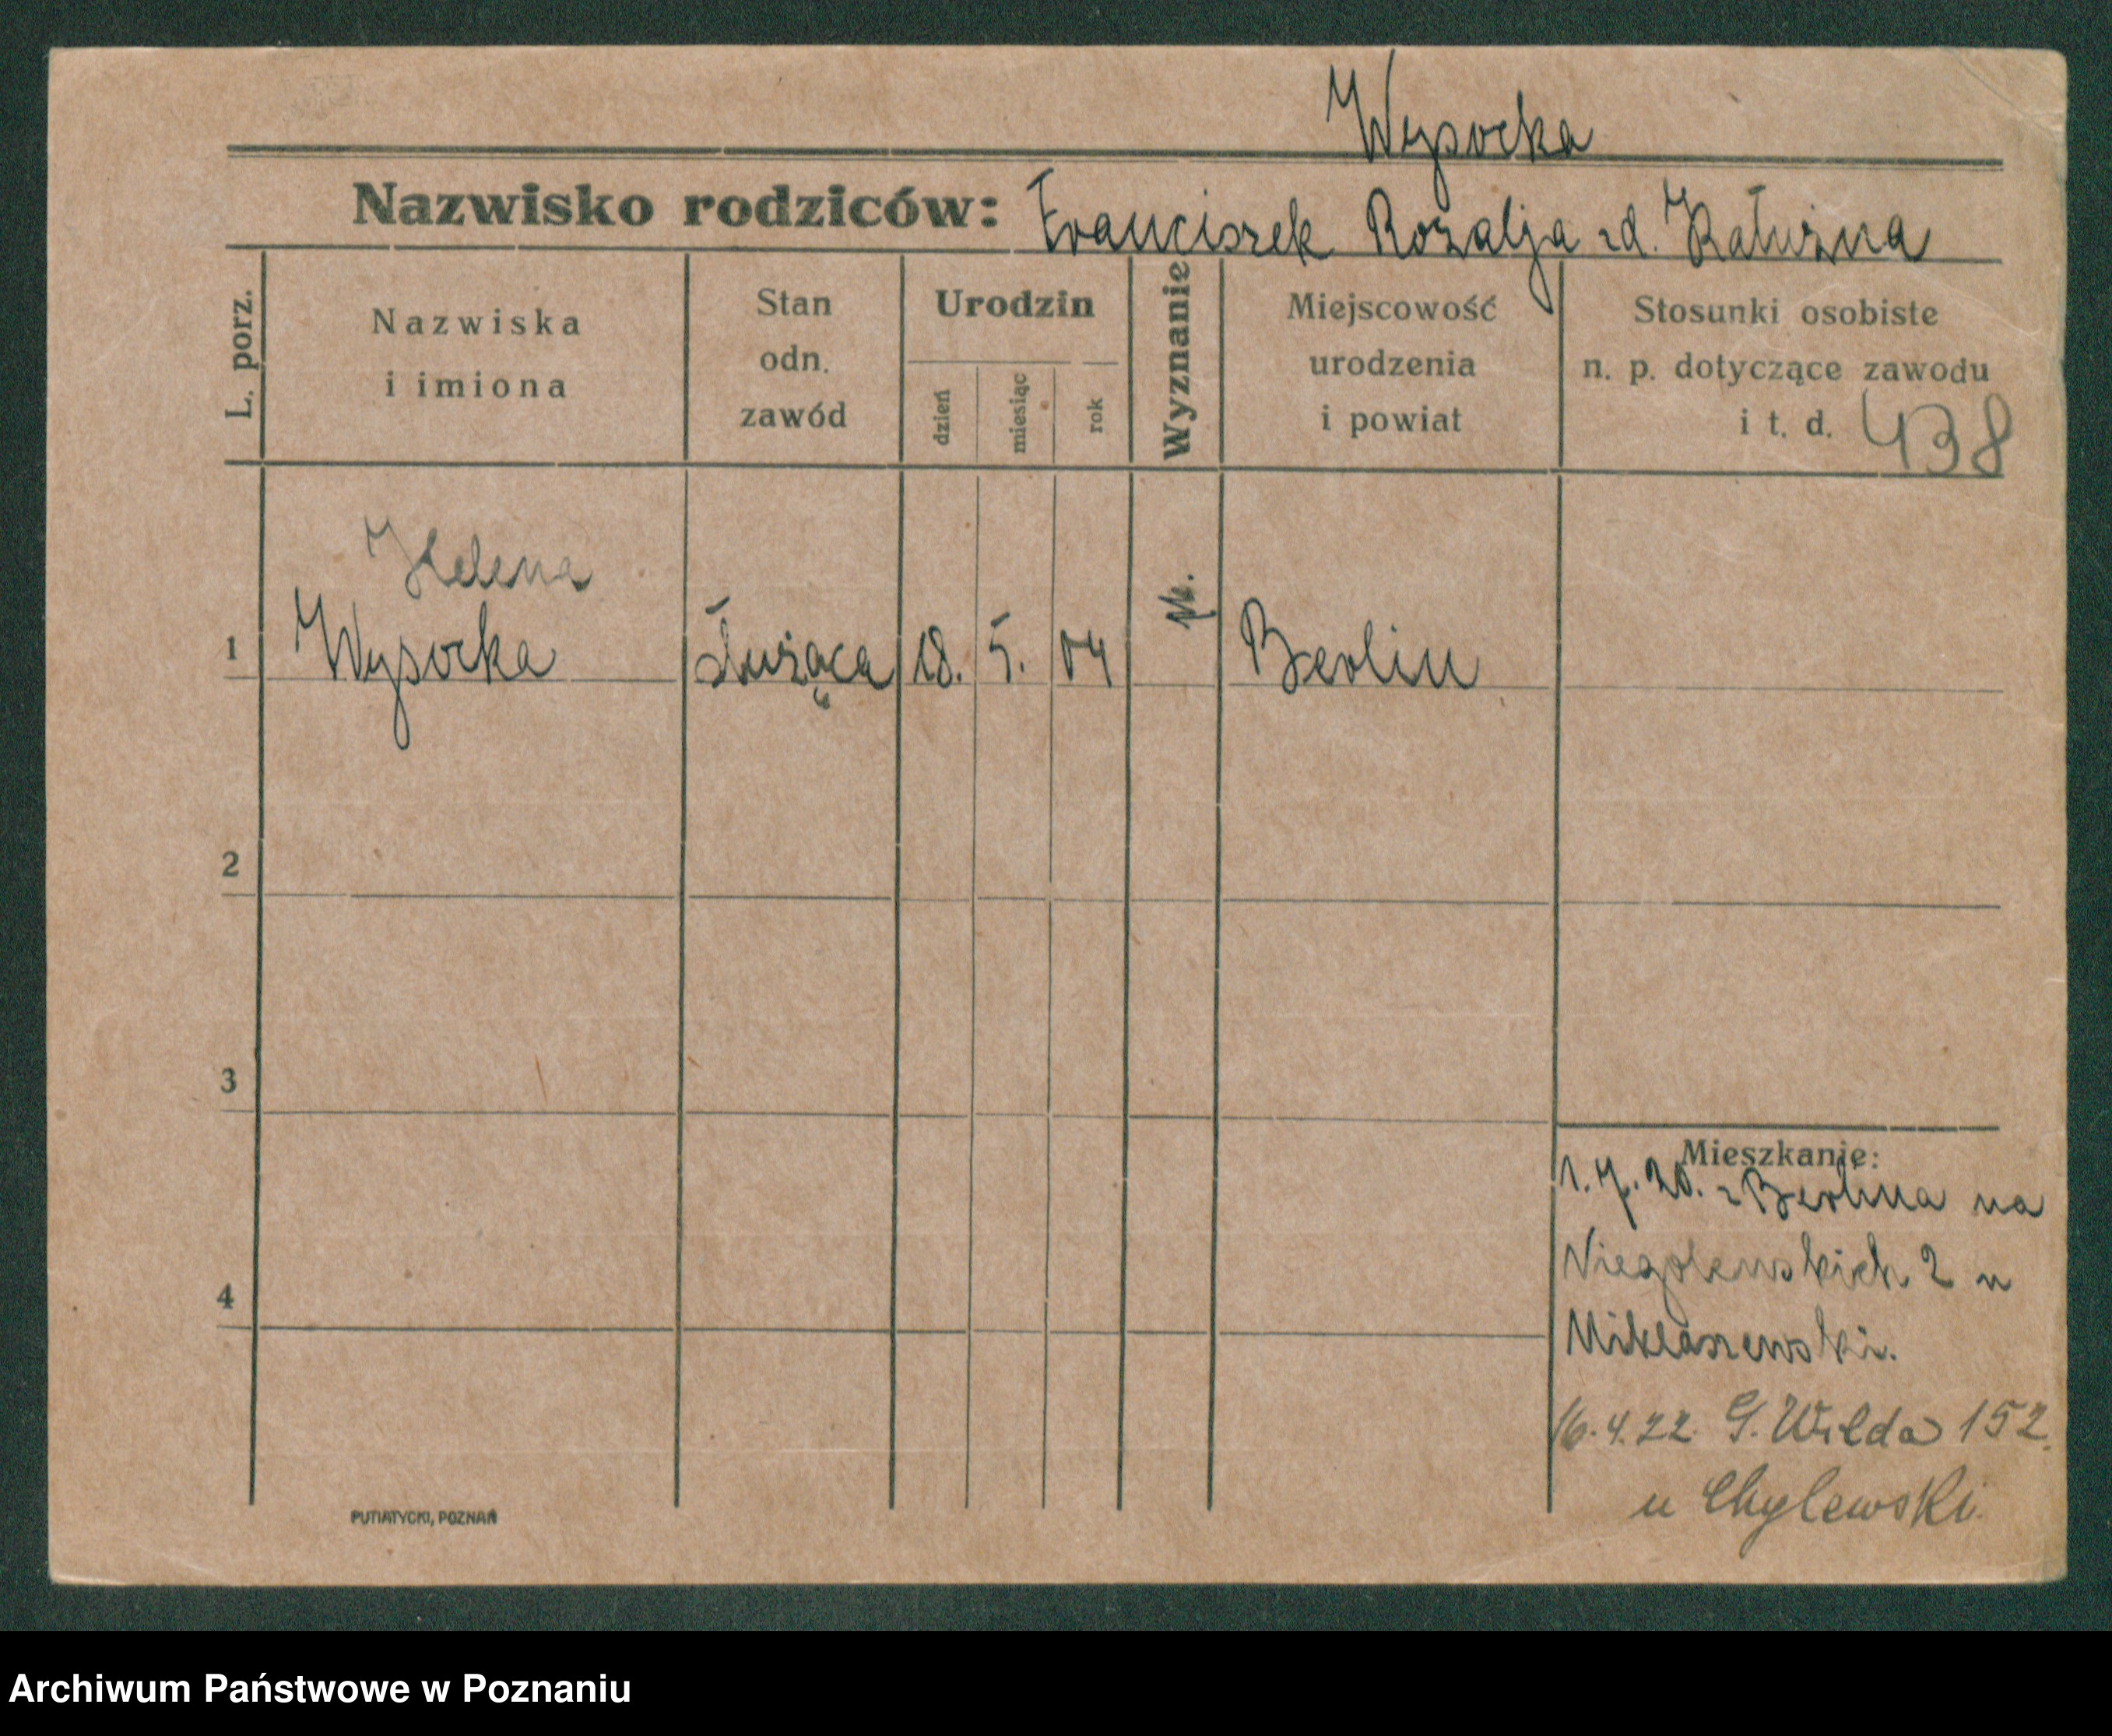 Wysocka
Nazwisko rodziców: Franciszek Rozalja zd. Kałużna
L. porz.
Nazwiska i imiona
Stan odn. zawód
Urodzin
dzień
miesiąc
rok
Wyznanie
Miejscowość urodzenia i powiat
Stosunki osobiste n. p. dotyczące zawodu i t. d.
438
Helena
1 Wysocka służąca 18. 5. 04 Berlin
2
3
4
Mieszkanie:
1. 7. 20. z Berlina na
Niegolewskich 2 u
Miklaszewski.
16.4.22. G. Wilda 152.
u Chylewski.
PUTIATYCKI, POZNAŃ
Archiwum Państwowe w Poznaniu